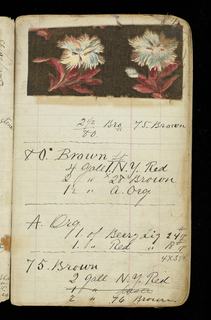 2½ Bro 75. Brown
80
80. Brown
4 Gall N.Y. Red
2 " × 27 Brown
1½ " A. Org
A. Org
11. of Berry Liq 24
1. " Red " 18
4X354
75. Brown
2 Gall N.Y. Red
2 " 76 Brown